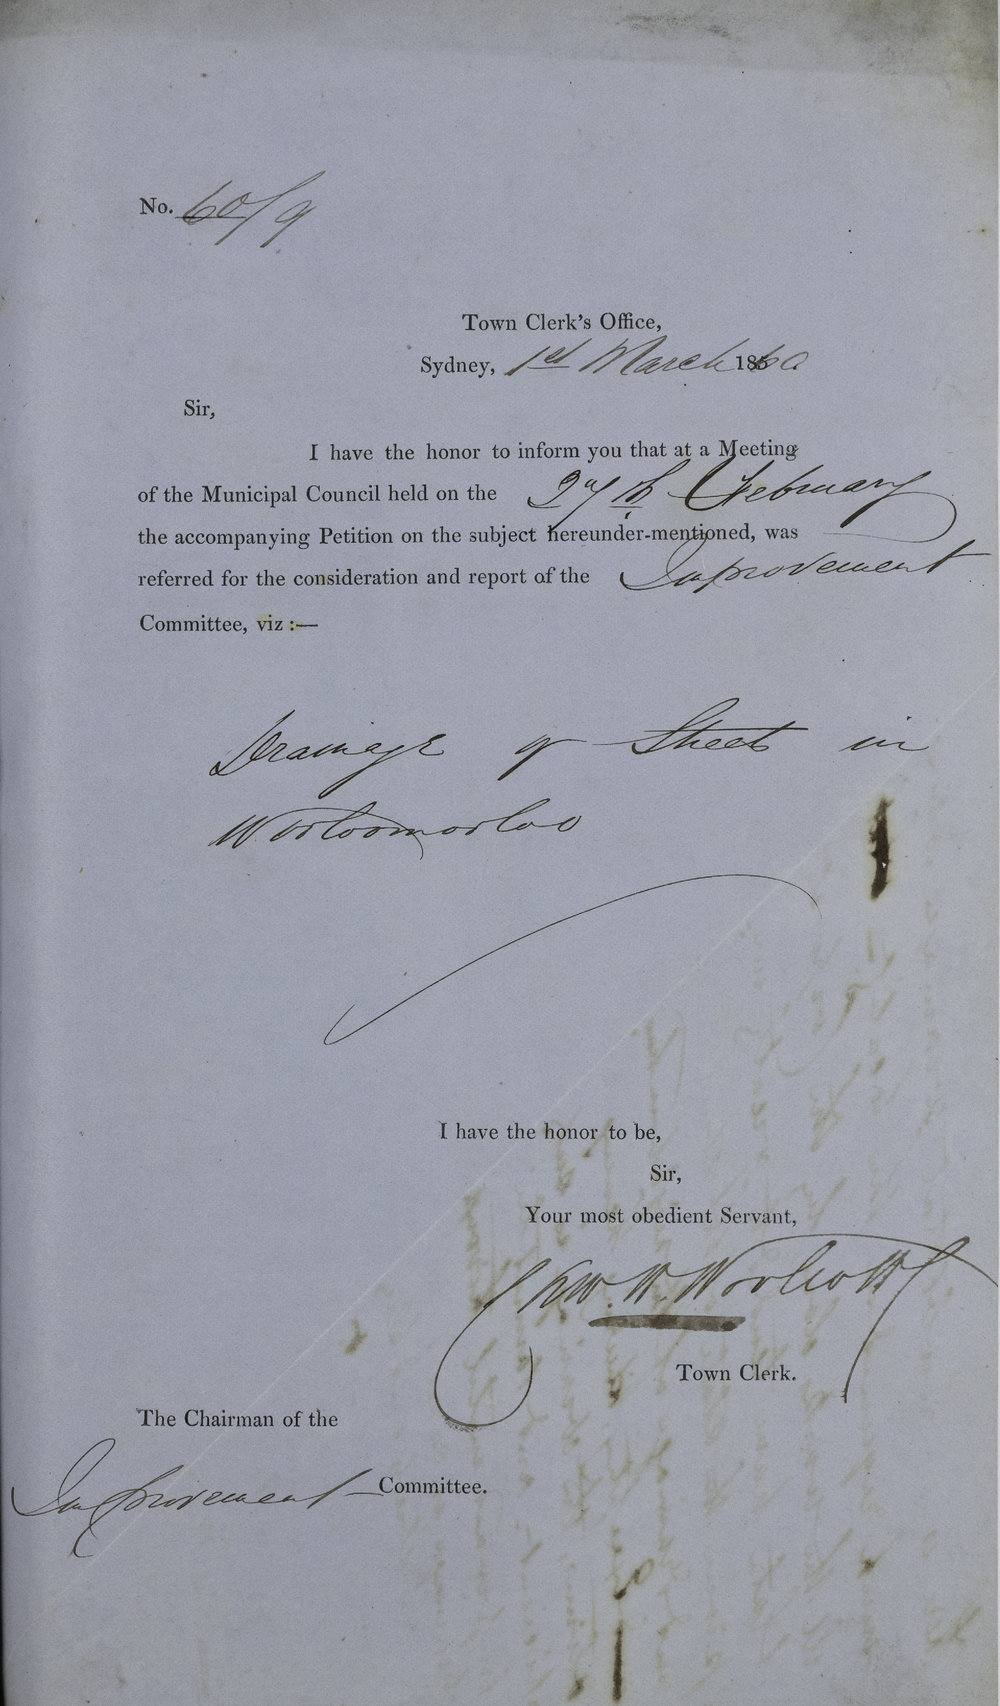 No. 60/9
Town Clerk's Office,
Sydney, 1st March 1860
Sir,
I have the honor to inform you that at a Meeting
of the Municipal Council held on the 27th February
the accompanying Petition on the subject hereunder-mentioned, was
referred for the consideration and report of the Improvement
Committee, viz :—
Drainage of Streets in
Woolloomooloo
I have the honor to be,
Sir,
Your most obedient Servant,
Woolcott
Town Clerk.
The Chairman of the
Improvement Committee.